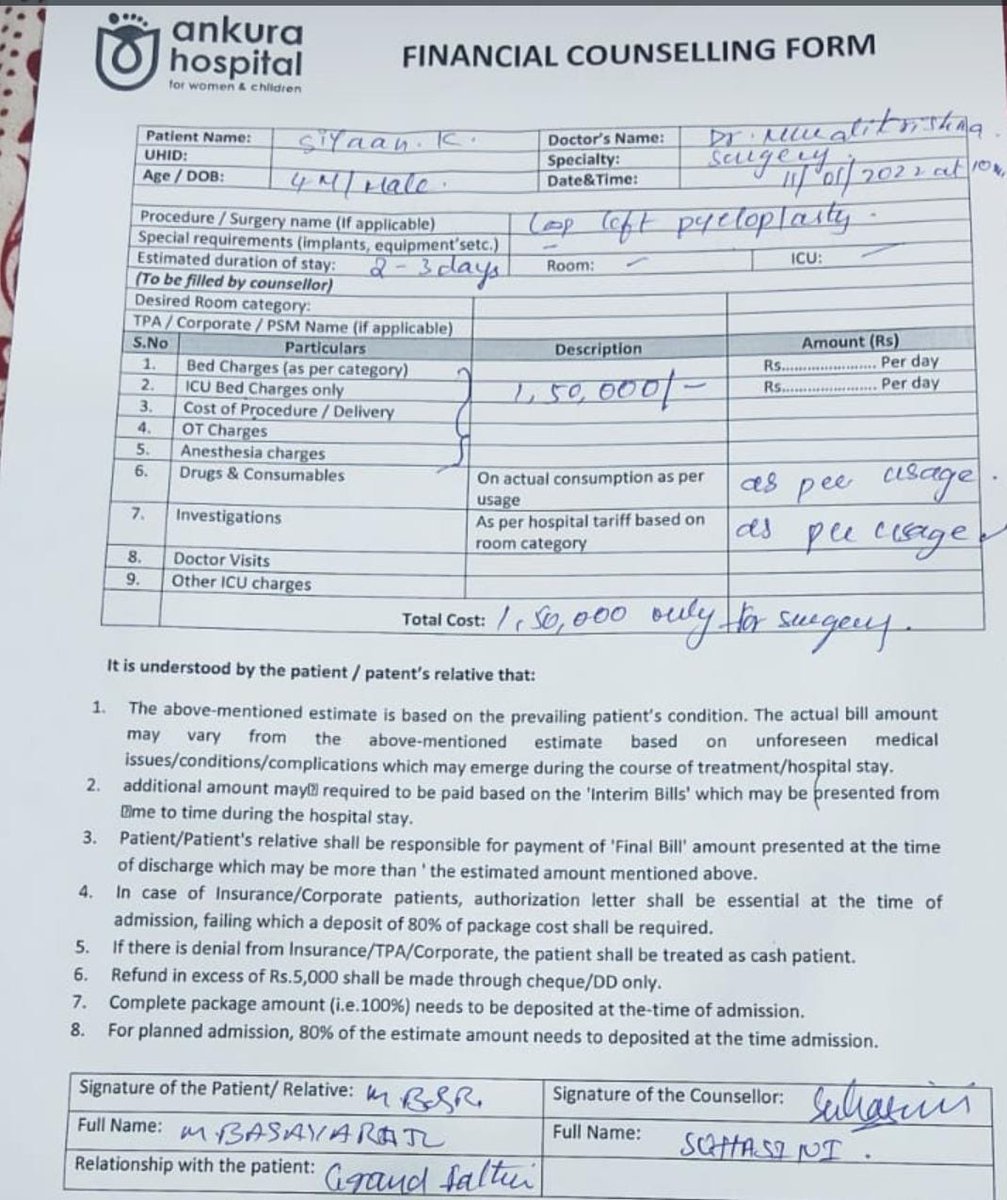 ankura
hospital
for women & children
FINANCIAL COUNSELLING FORM
Patient Name: Siyaan. K. Doctor's Name: Dr.
UHID: Specialty: Surgery.
Age / DOB: 4 M / Male. Date&Time: 11/01/2022 at 10
Procedure / Surgery name (If applicable) Lap left pyeloplasty.
Special requirements (implants, equipment'setc.) -
Estimated duration of stay: 2 - 3 days Room: - ICU: -
(To be filled by counsellor)
Desired Room category:
TPA / Corporate / PSM Name (if applicable)
S.No Particulars Description Amount (Rs)
1. Bed Charges (as per category) Rs...................... Per day
2. ICU Bed Charges only 1,50,000/- Rs...................... Per day
3. Cost of Procedure / Delivery
4. OT Charges
5. Anesthesia charges
6. Drugs & Consumables On actual consumption as per usage as per usage.
7. Investigations As per hospital tariff based on room category as per usage
8. Doctor Visits
9. Other ICU charges
Total Cost: 1,50,000 only for surgery.
It is understood by the patient / patent's relative that:
1. The above-mentioned estimate is based on the prevailing patient's condition. The actual bill amount
may vary from the above-mentioned estimate based on unforeseen medical
issues/conditions/complications which may emerge during the course of treatment/hospital stay.
2. additional amount may required to be paid based on the 'Interim Bills' which may be presented from
me to time during the hospital stay.
3. Patient/Patient's relative shall be responsible for payment of 'Final Bill' amount presented at the time
of discharge which may be more than ' the estimated amount mentioned above.
4. In case of Insurance/Corporate patients, authorization letter shall be essential at the time of
admission, failing which a deposit of 80% of package cost shall be required.
5. If there is denial from Insurance/TPA/Corporate, the patient shall be treated as cash patient.
6. Refund in excess of Rs.5,000 shall be made through cheque/DD only.
7. Complete package amount (i.e.100%) needs to be deposited at the-time of admission.
8. For planned admission, 80% of the estimate amount needs to deposited at the time admission.
Signature of the Patient/ Relative: Signature of the Counsellor: Suhasini
Full Name: Full Name: SUHASINI.
Relationship with the patient: Grand father